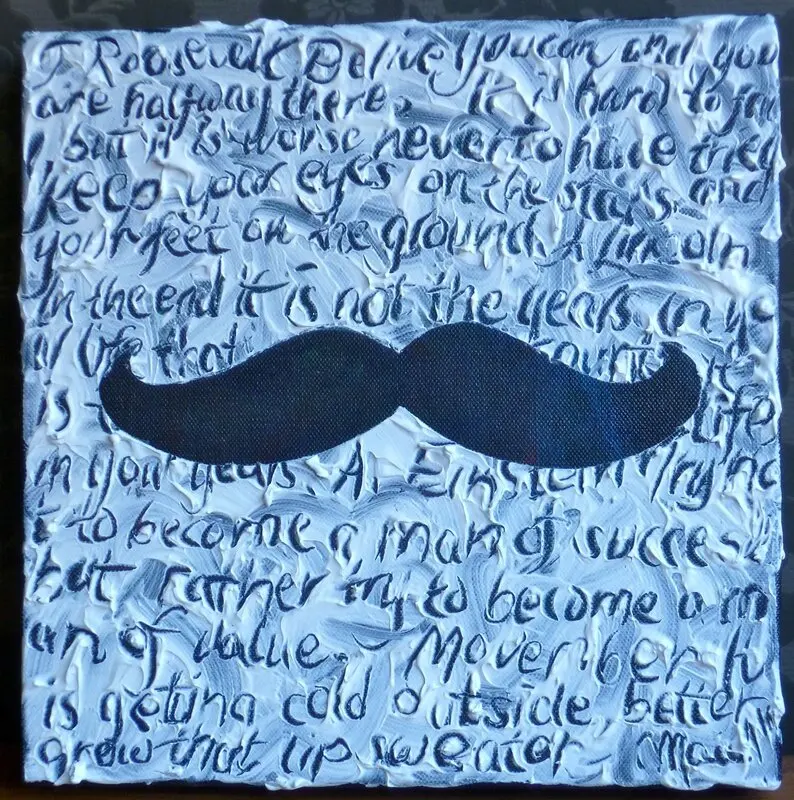 T Roosevelt Belive you can and you
are halfway there. It is hard to fai
l, but it is worse never to have tried
keep your eyes on the stars and
your feet on the ground A Lincoln
In the end it is not the years in yo
ur life that count it
is life
in your years. A. Einstein Try no
t to become a man of succes
but rather try to become a m
an of value. Movember
is getting cold outside better
grow that lip sweater